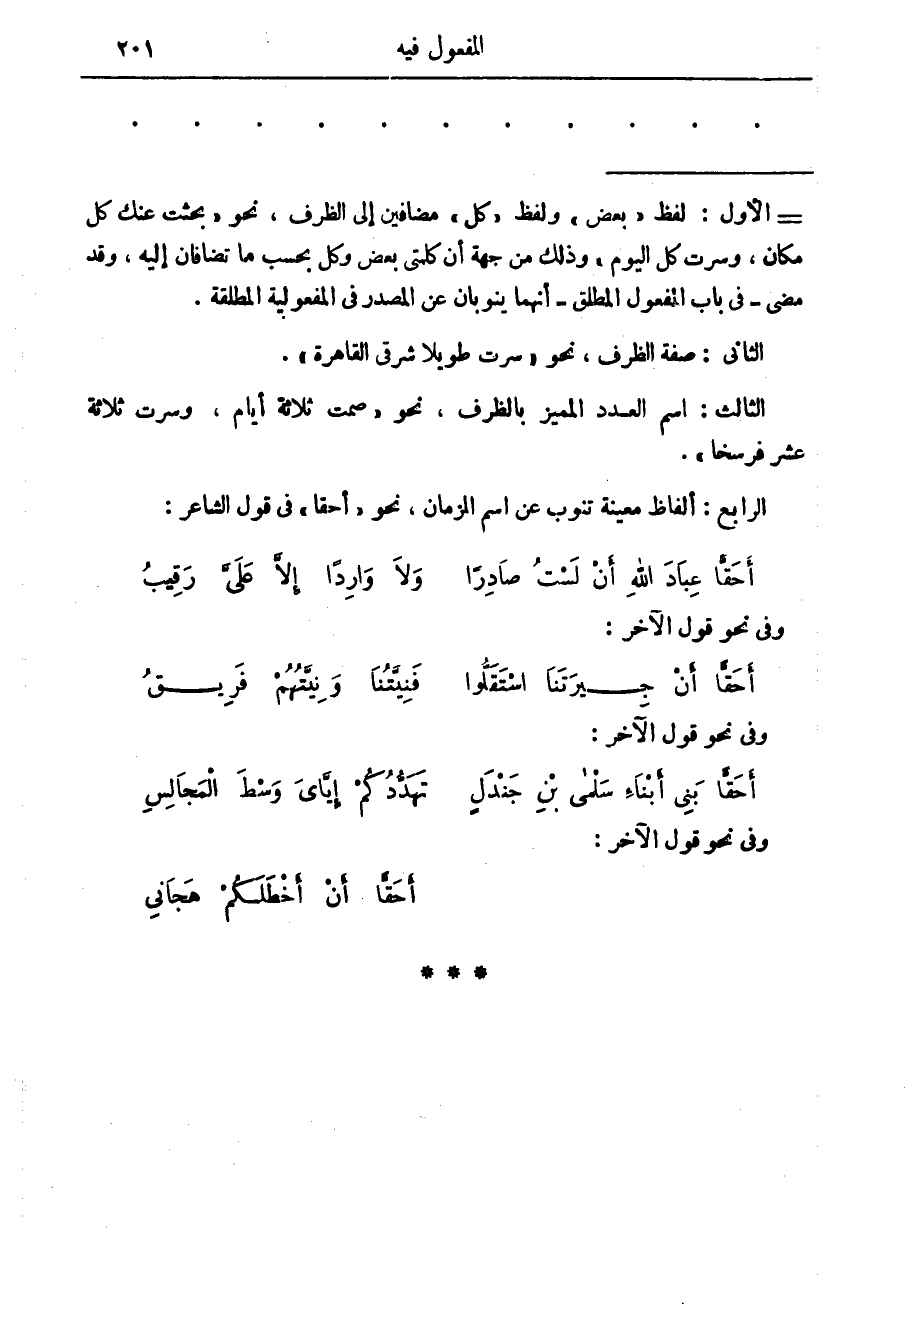 المفعول فيه ٢٠١
. . . . . . . . . . .
= الأول : لفظ « بعض » ولفظ « كل » مضافين إلى الظرف ، نحو « بحثت عنك كل
مكان ، وسرت كل اليوم » وذلك من جهة أن كلمتى بعض وكل بحسب ما تضافان إليه ، وقد
مضى ــ فى باب المفعول المطلق ــ أنهما ينوبان عن المصدر فى المفعولية المطلقة .
الثانى : صفة الظرف ، نحو « سرت طويلا شرقى القاهرة » .
الثالث : اسم العدد المميز بالظرف ، نحو « صمت ثلاثة أيام ، وسرت ثلاثة
عشر فرسخا » .
الرابع : ألفاظ معينة تنوب عن اسم الزمان ، نحو « أحقا » فى قول الشاعر :
أَحَقًّا عِبَادَ اللهِ أَنْ لَسْتُ صَادِرًا وَلاَ وَارِدًا إِلاَّ عَلَىَّ رَقِيبُ
وفى نحو قول الآخر :
أَحَقًّا أَنْ جِـيرَتَنَا اسْتَقَلُّوا فَنِيَّتُنَا وَنِيَّتُهُمْ فَرِيـقُ
وفى نحو قول الآخر :
أَحَقًّا بَنِي أَبْنَاءِ سَلْمٰى بْنِ جَنْدَلٍ تَهَدُّدُكُمْ إِيَّاىَ وَسْطَ الْمَجَالِسِ
وفى نحو قول الآخر :
أَحَقًّا أَنْ أَخْطَلَـكُمْ هَجَانِي
* * *